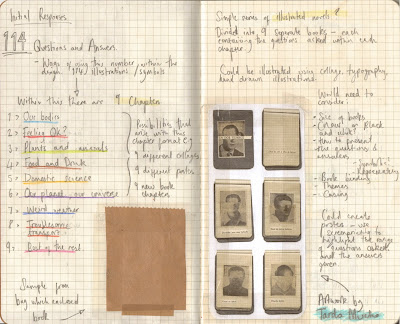 Initial Responses
114 Questions and Answers.
- Ways of using this number within the
design 114 / illustrations / symbols
Within this there are 9 Chapters
1> Our bodies
2> Feeling Ok?
3> Plants and animals
4> Food and Drink
5> Domestic science
6> Our planet, our universe
7> Weird weather
8> Troublesome transport
9> Best of the rest
Possibilities that
arise with this
chapter format
9 different collages
9 different posters
9 new chapter
books
Sample from
bag which enclosed
book
Simple series of illustrated novels?
Divided into 9 separate books - each
containing the questions asked within each
chapter.
Could be illustrated using collage, typography,
hand drawn illustrations.
Would need to
consider:
- Size of books
- Colour or Black
and white?
- How to present
the questions &
answers
- Symbols?
- Book binding
- Themes
- Casing
Could create
poster - use
to
highlight the range
of questions asked
and the answers
given
Artwork by